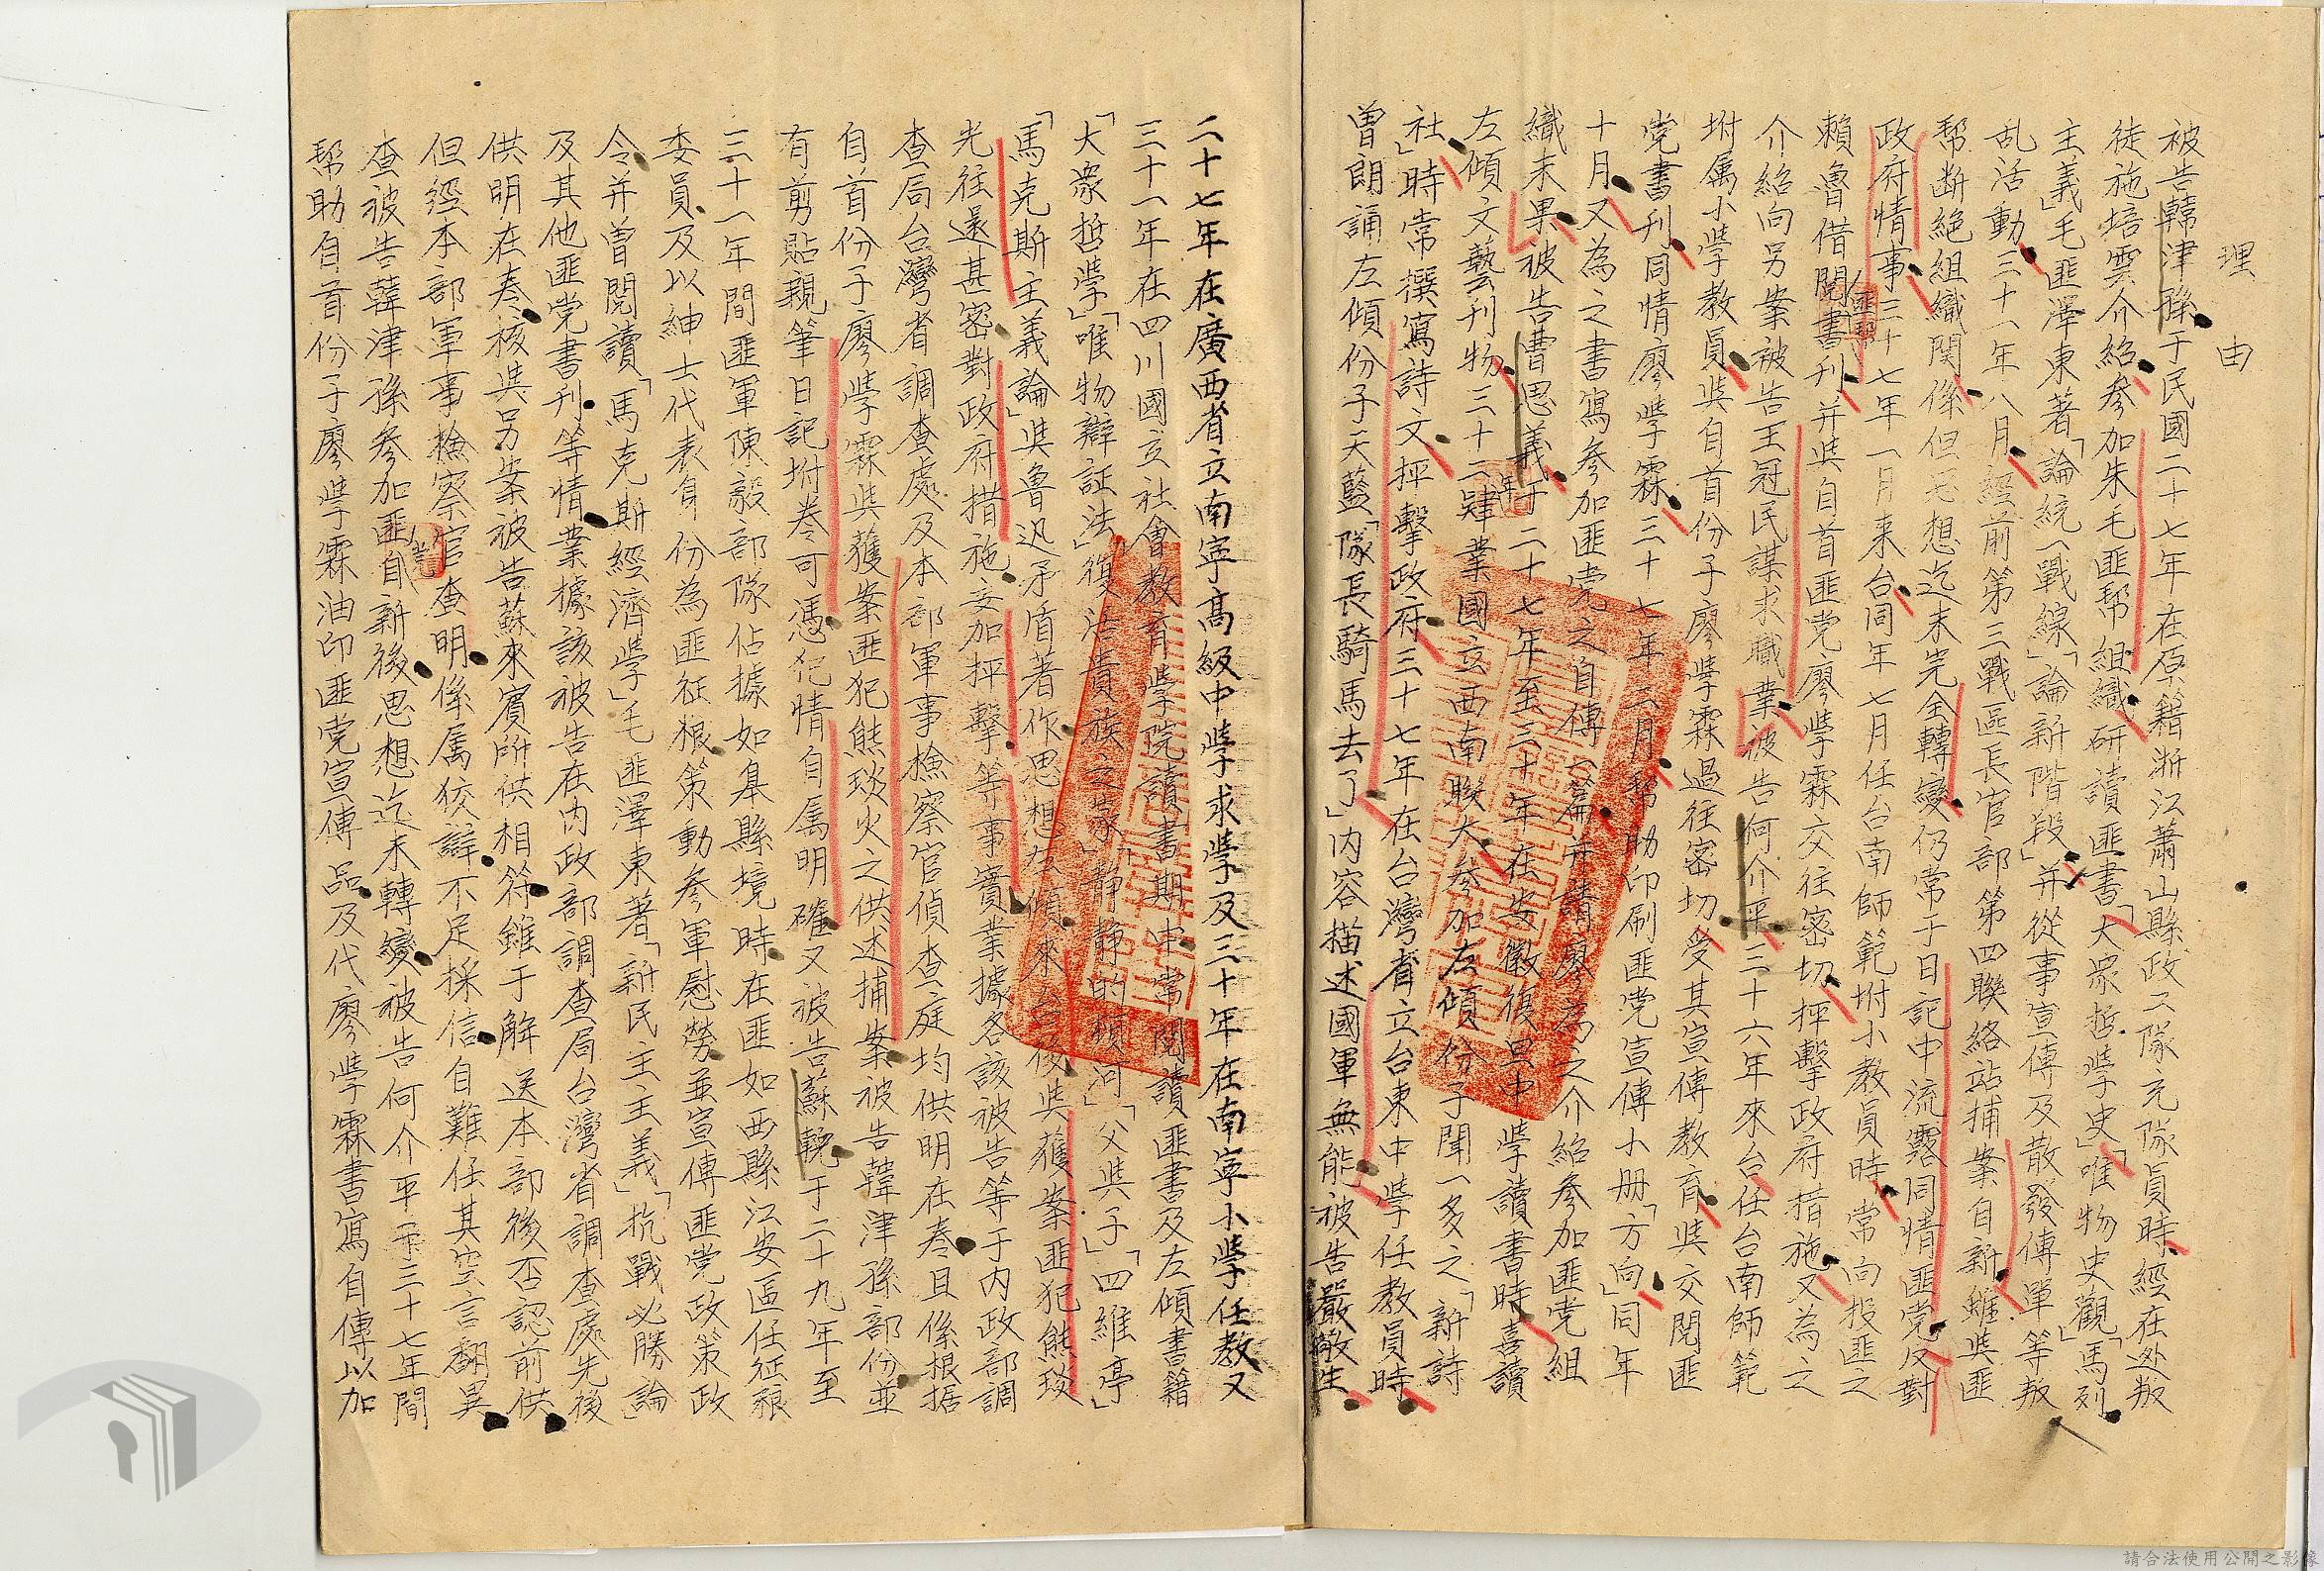 理由
被告韓津孫于民國二十七年在原籍浙江蕭山縣政工隊充隊員時經在逃叛
徒施培雲介紹參加朱毛匪幫組織研讀匪書「大眾哲學史」「唯物史觀」「馬列
主義」毛匪澤東著「論統一戰線」「論新階段」并從事宣傳及散發傳單等叛
乱活動三十一年八月經前第三戰區長官部第四聯絡站捕業自新雖與匪
幫断絕組織関係但思想迄未完全轉變仍常于日記中流露同情匪党反對
政府情事三十七年一月来台同年七月任台南師範坿小教員時常向投匪之
賴魯借閱書刊并與自首匪党廖學霖交往密切抨擊政府措施又為之
介紹向另案被告王冠民謀求職業被告何介平三十六年來台任台南師範
坿属小學教員與自首份子廖學霖過往密切受其宣傳教育與交閱匪
党書刊同情廖學霖三十七年三月幫助印刷匪党宣傳小冊「方向」同年
十月又為之書寫參加匪党之自傳一篇并請廖為之介紹參加匪党組
織未果被告曹思義于二十七年至三十年在安徽復旦中學讀書時喜讀
左傾文藝刊物三十二年肄業國立西南聯大參加左傾份子聞一多之「新詩
社」時常撰寫詩文抨擊政府三十七年在台灣省立台東中學任教員時
曾朗誦左傾份子天藍「隊長騎馬去了」内容描述國軍無能被告嚴敞生
二十七年在廣西省立南寧高級中學求學及三十年在南寧小學任教又
三十一年在四川國立社會教育學院讀書期中常閱讀匪書及左傾書籍
「大衆哲學」「唯物辯証法」「復活貴族之家」「静静的頓河」「父與子」「四維亭」
「馬克斯主義論」與魯迅矛盾著作思想左傾來台後與獲案匪犯熊琰
光往還甚密對政府措施妄加抨擊等事實業據各該被告等于内政部調
查局台灣省調查處及本部軍事檢察官偵查庭均供明在卷且係根据
自首份子廖學霖與獲案匪犯熊琰火之供述捕案被告韓津孫部份並
有剪貼親筆日記坿卷可憑犯情自属明確又被告蘇輓于二十九年至
三十一年間匪軍陳毅部隊佔據如皋縣境時在匪如西縣江安區任征粮
委員及以紳士代表身份為匪征粮策動參軍慰勞並宣傳匪党政策政
令并曽閱讀「馬克斯經濟學」毛匪澤東著「新民主主義」「抗戰必勝論」
及其他匪党書刊等情業據該被告在内政部調查局台灣省調查處先後
供明在卷核與另案被告蘇來賓所供相符雖于解送本部後否認前供
但經本部軍事檢察官查明係属狡辯不足採信自難任其空言翻異
查被告韓津孫參加匪自新後思想迄未轉變被告何介平于三十七年間
幫助自首份子廖學霖油印匪党宣傳品及代廖學霖書寫自傳以加
請合法使用公開之影像